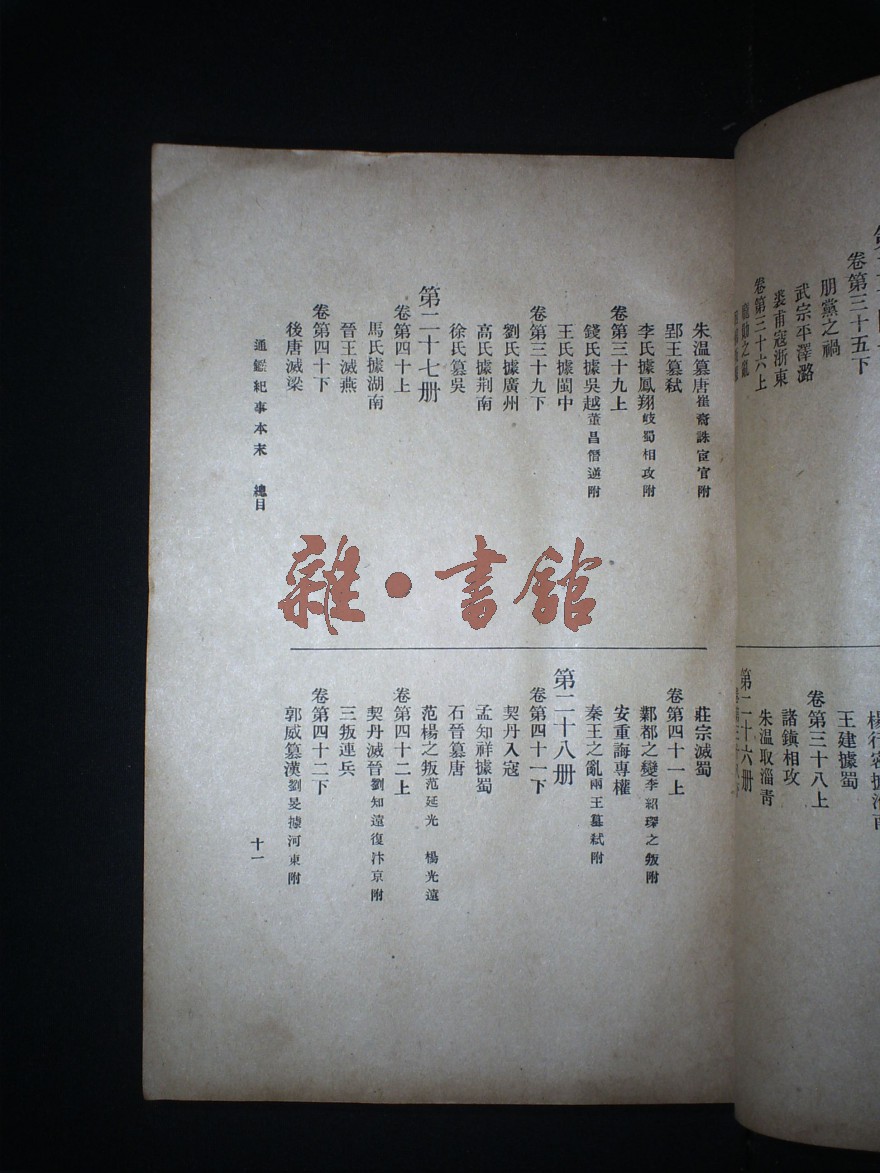 卷第三十五下
朋黨之禍
武宗平澤潞
裘甫寇浙東
卷第三十六上
龐勛之亂
楊行密據淮南
王建據蜀
卷第三十八上
諸鎮相攻
朱溫取淄青
第二十六册
朱溫篡唐崔裔誅宦官附
郢王篡弒
李氏據鳳翔岐蜀相攻附
卷第三十九上
錢氏據吳越董昌僭逆附
王氏據閩中
卷第三十九下
劉氏據廣州
高氏據荆南
徐氏篡吳
第二十七册
卷第四十上
馬氏據湖南
晉王滅燕
卷第四十下
後唐滅梁
通鑑紀事本末 總目
雜·書館
莊宗滅蜀
卷第四十一上
鄴都之變李紹琛之叛附
安重誨專權
秦王之亂兩王篡弒附
第二十八册
卷第四十一下
契丹入寇
孟知祥據蜀
石晉篡唐
范楊之叛范延光 楊光遠
卷第四十二上
契丹滅晉劉知遠復汴京附
三叛連兵
卷第四十二下
郭威篡漢劉旻據河東附
十一